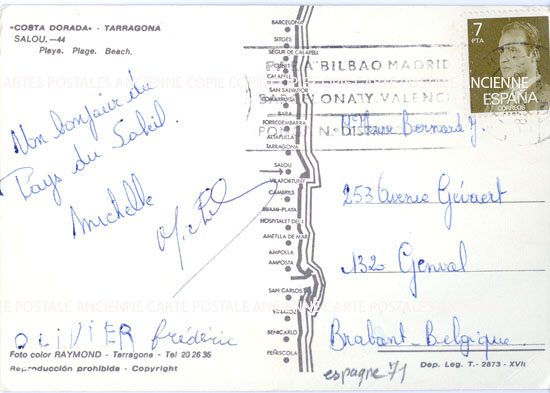 «COSTA DORADA» - TARRAGONA
SALOU.—44
Playa. Plage. Beach.
Mon bonjour du
Pays du Soleil.
Michelle
OLIVIER Frédéric
Foto color RAYMOND - Tarragona - Tel 20 26 35
Reproducción prohibida - Copyright
BARCELONA
SITGES
SEGUR DE CALAFELL
CALAFELL
SAN SALVADOR
BARA
TORREDEMBARRA
ALTAFULLA
TARRAGONA
SALOU
VILAFORTUNY
CAMBRILS
MIAMI-PLAYA
HOSPITALET DE I.
AMETLLA DE MAR
AMPOLLA
AMPOSTA
SAN CARLOS
VINAROZ
BENICARLO
PEÑISCOLA
7
PTA
ESPAÑA
CORREOS
BILBAO MADRID
VALENC
POR N.º DIST
Bernard J.
253 Avenue Gévaert
1320 Genval
Brabant-Belgique
espagne 71
Dep. Leg. T.- 2873 - XVII
CARTE POSTALE ANCIENNE CARTE POSTALE ANCIENNE